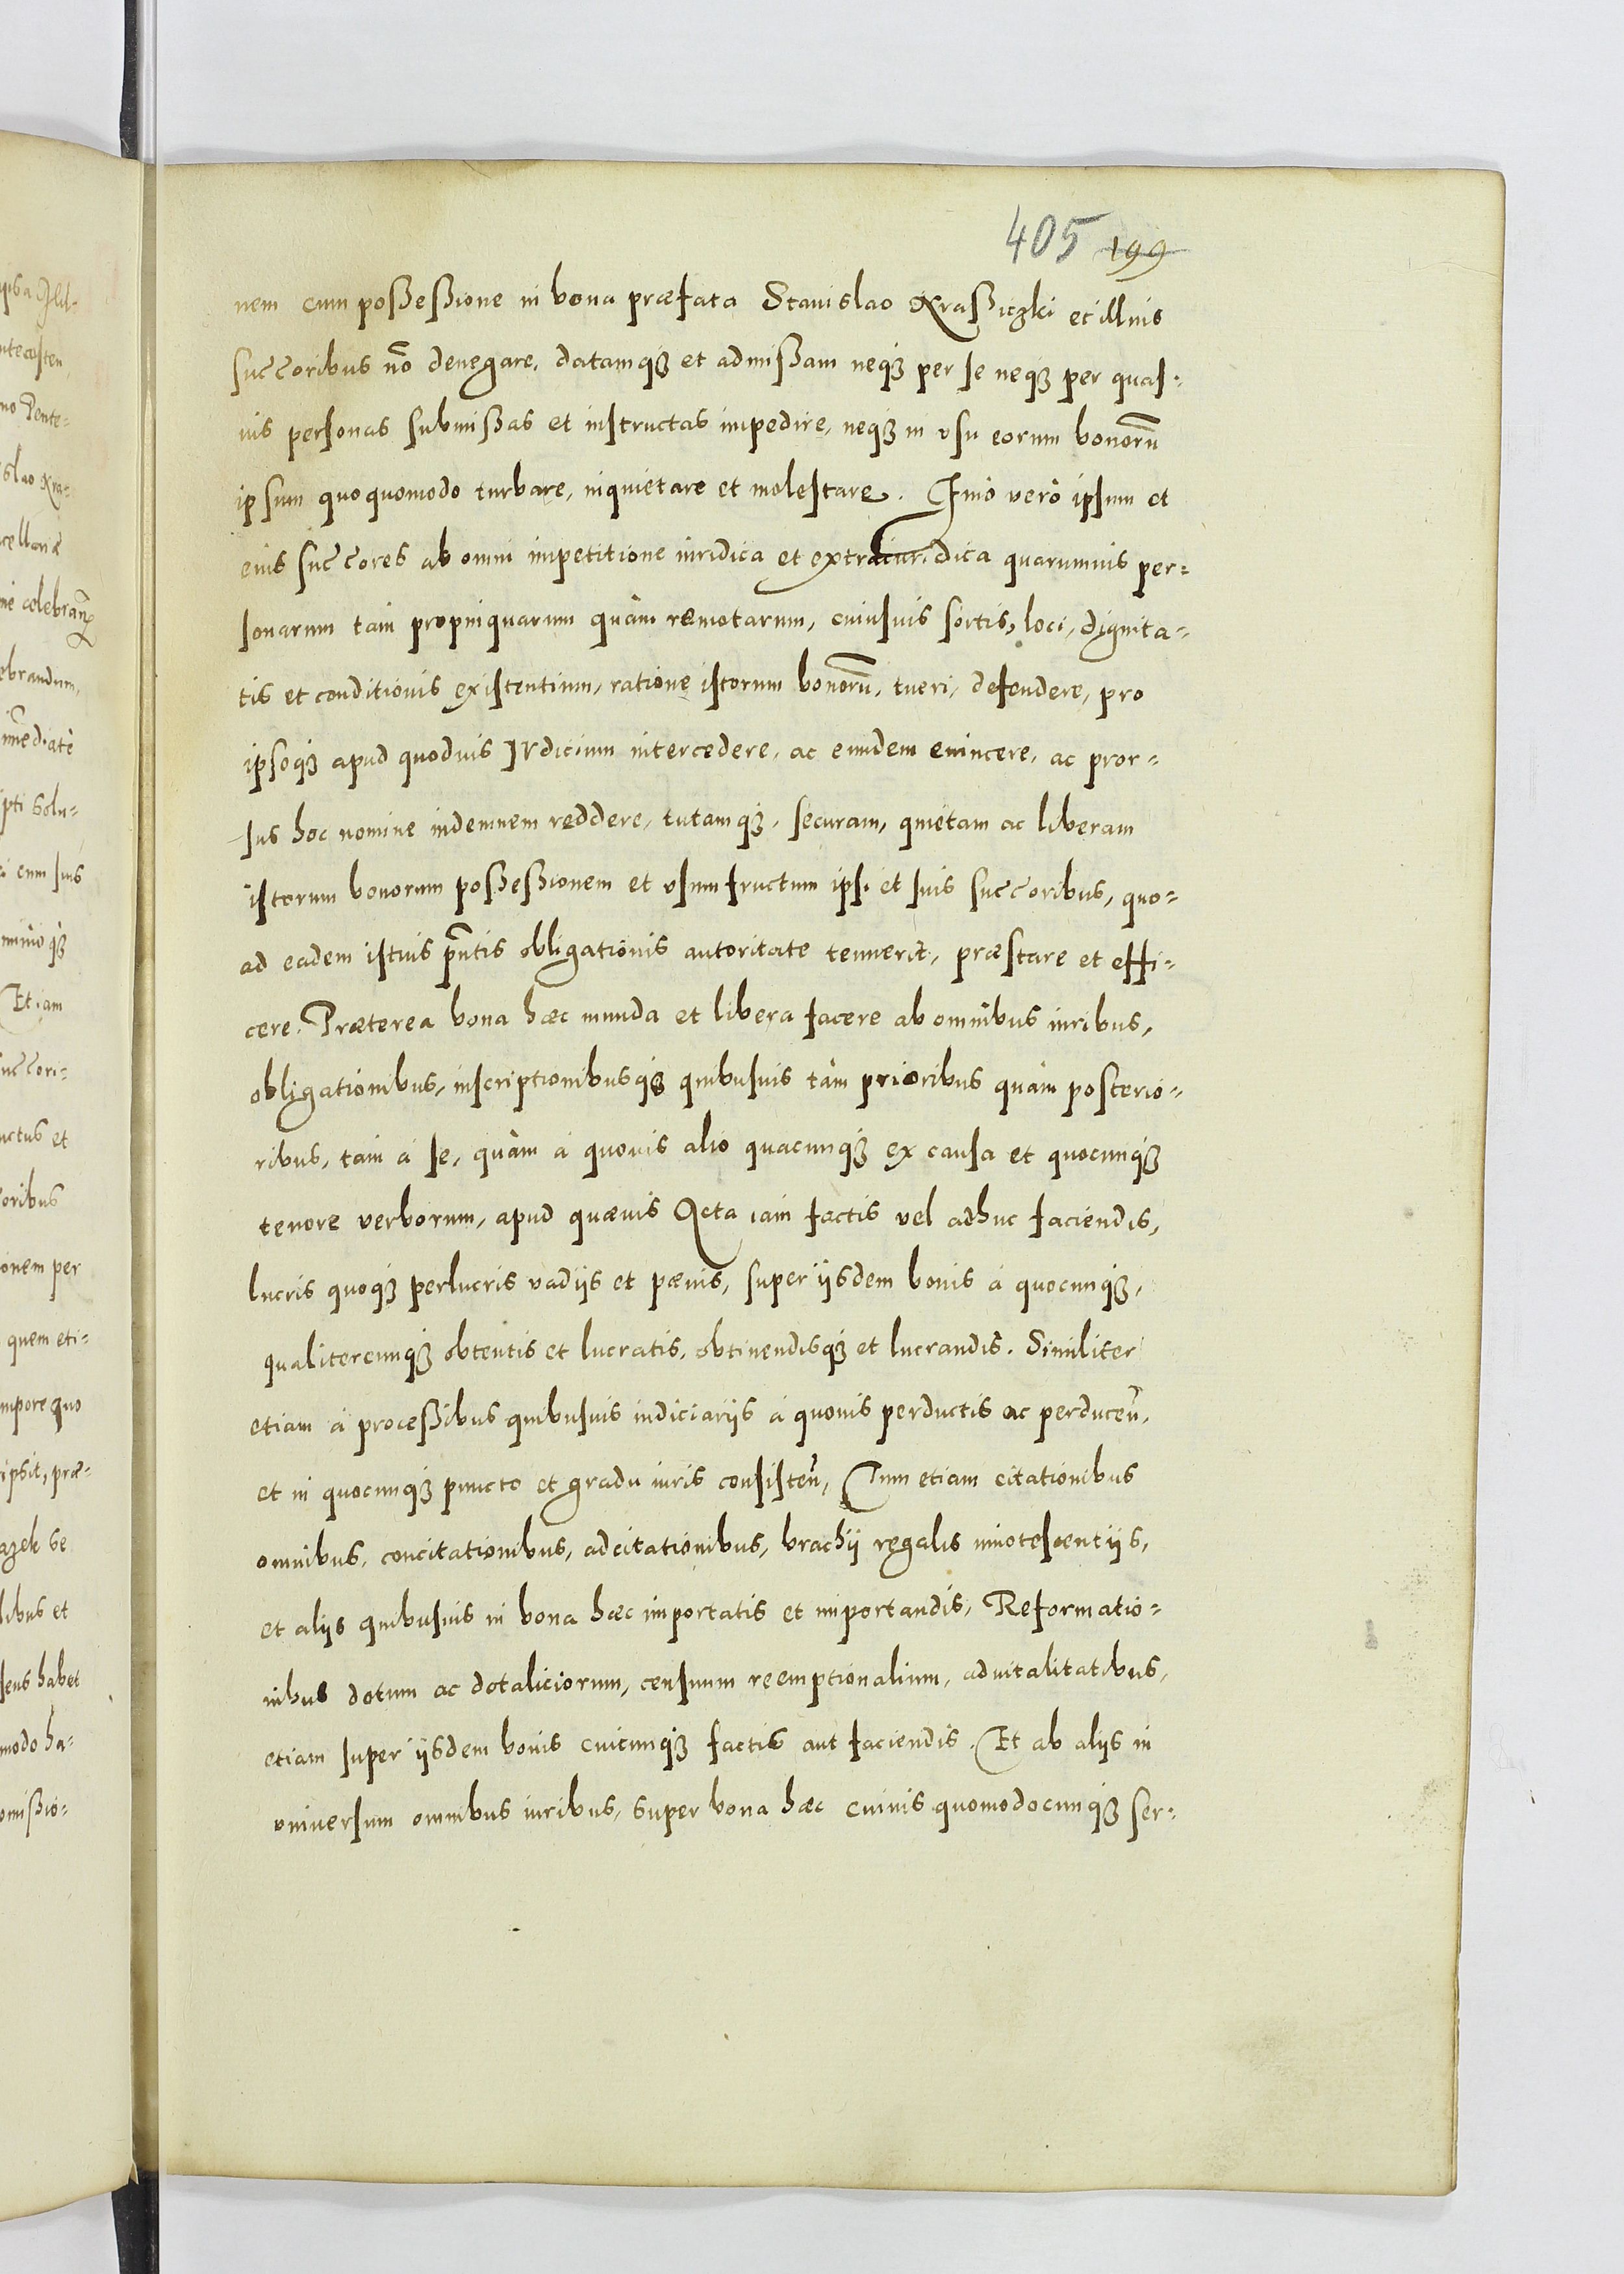 405 199
nem cum poßeßione in bona præfata Stanislao Kraßiczki et illius
succoribus nõ denegare, datamqȝ et admißam neqȝ per se neqȝ per quas-
uis personas submißas et instructas impedire, neqȝ in vsu eorum bonorũ
ipsum quoquomodo turbare, inquietare et molestare. Imò verò ipsum et
eius succores ab omni impetitione iuridica et extraiuridica quarumuis per=
sonarum tam propinquarum quàm remotarum, cuiusuis sortis, loci, dignita=
tis et conditionis existentium, ratione istorum bonorũ, tueri, defendere, pro
ipsoqȝ apud quoduis Iudicium intercedere, ac eundem euincere, ac pror=
sus hoc nomine indemnem reddere, tutamqȝ, securam, quietam ac liberam
istorum bonorum poßeßionem et vsumfructum ipsi et suis succoribus, quo=
ad eadem istius pñtis obligationis autoritate tenuerit, præstare et effi=
cere. Præterea bona hæc munda et libera facere ab omnibus iuribus,
obligationibus, inscriptionibusqȝ quibusuis tàm prioribus quàm posterio=
ribus, tam à se, quàm à quouis alio quacunqȝ ex causa et quocunqȝ
tenore verborum, apud quæuis Acta iam factis vel adhuc faciendis,
lucris quoqȝ perlucris vadijs et pænis, super ijsdem bonis à quocunqȝ,
qualitercunqȝ obtentis et lucratis, obtinendisqȝ et lucrandis. Similiter
etiam à proceßibus quibusuis iudiciarijs à quouis perductis ac perduceñ,
et in quocunqȝ puncto et gradu iuris consisteñ, Cum etiam citationibus
omnibus, concitationibus, adcitationibus, brachij regalis innotescentijs,
et alijs quibusuis in bona hæc importatis et importandis, Reformatio=
nibus dotum ac dotaliciorum, censuum reemptionalium, aduitalitatibus,
etiam super ijsdem bonis cuicunqȝ factis aut faciendis. Et ab alijs in
vniuersum omnibus iuribus, super bona hæc cuiuis quomodocunqȝ ser=